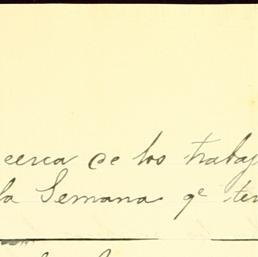 cerca de los trabaj
la Semana qe ter